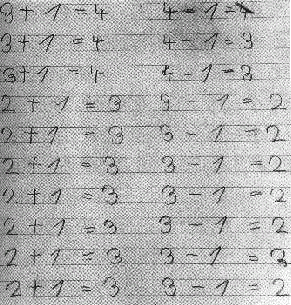 3+1=4 4-1=4
3+1=4 4-1=3
3+1=4 4-1=3
2+1=3 3-1=2
2+1=3 3-1=2
2+1=3 3-1=2
2+1=3 3-1=2
2+1=3 3-1=2
2+1=3 3-1=3
2+1=3 3-1=2